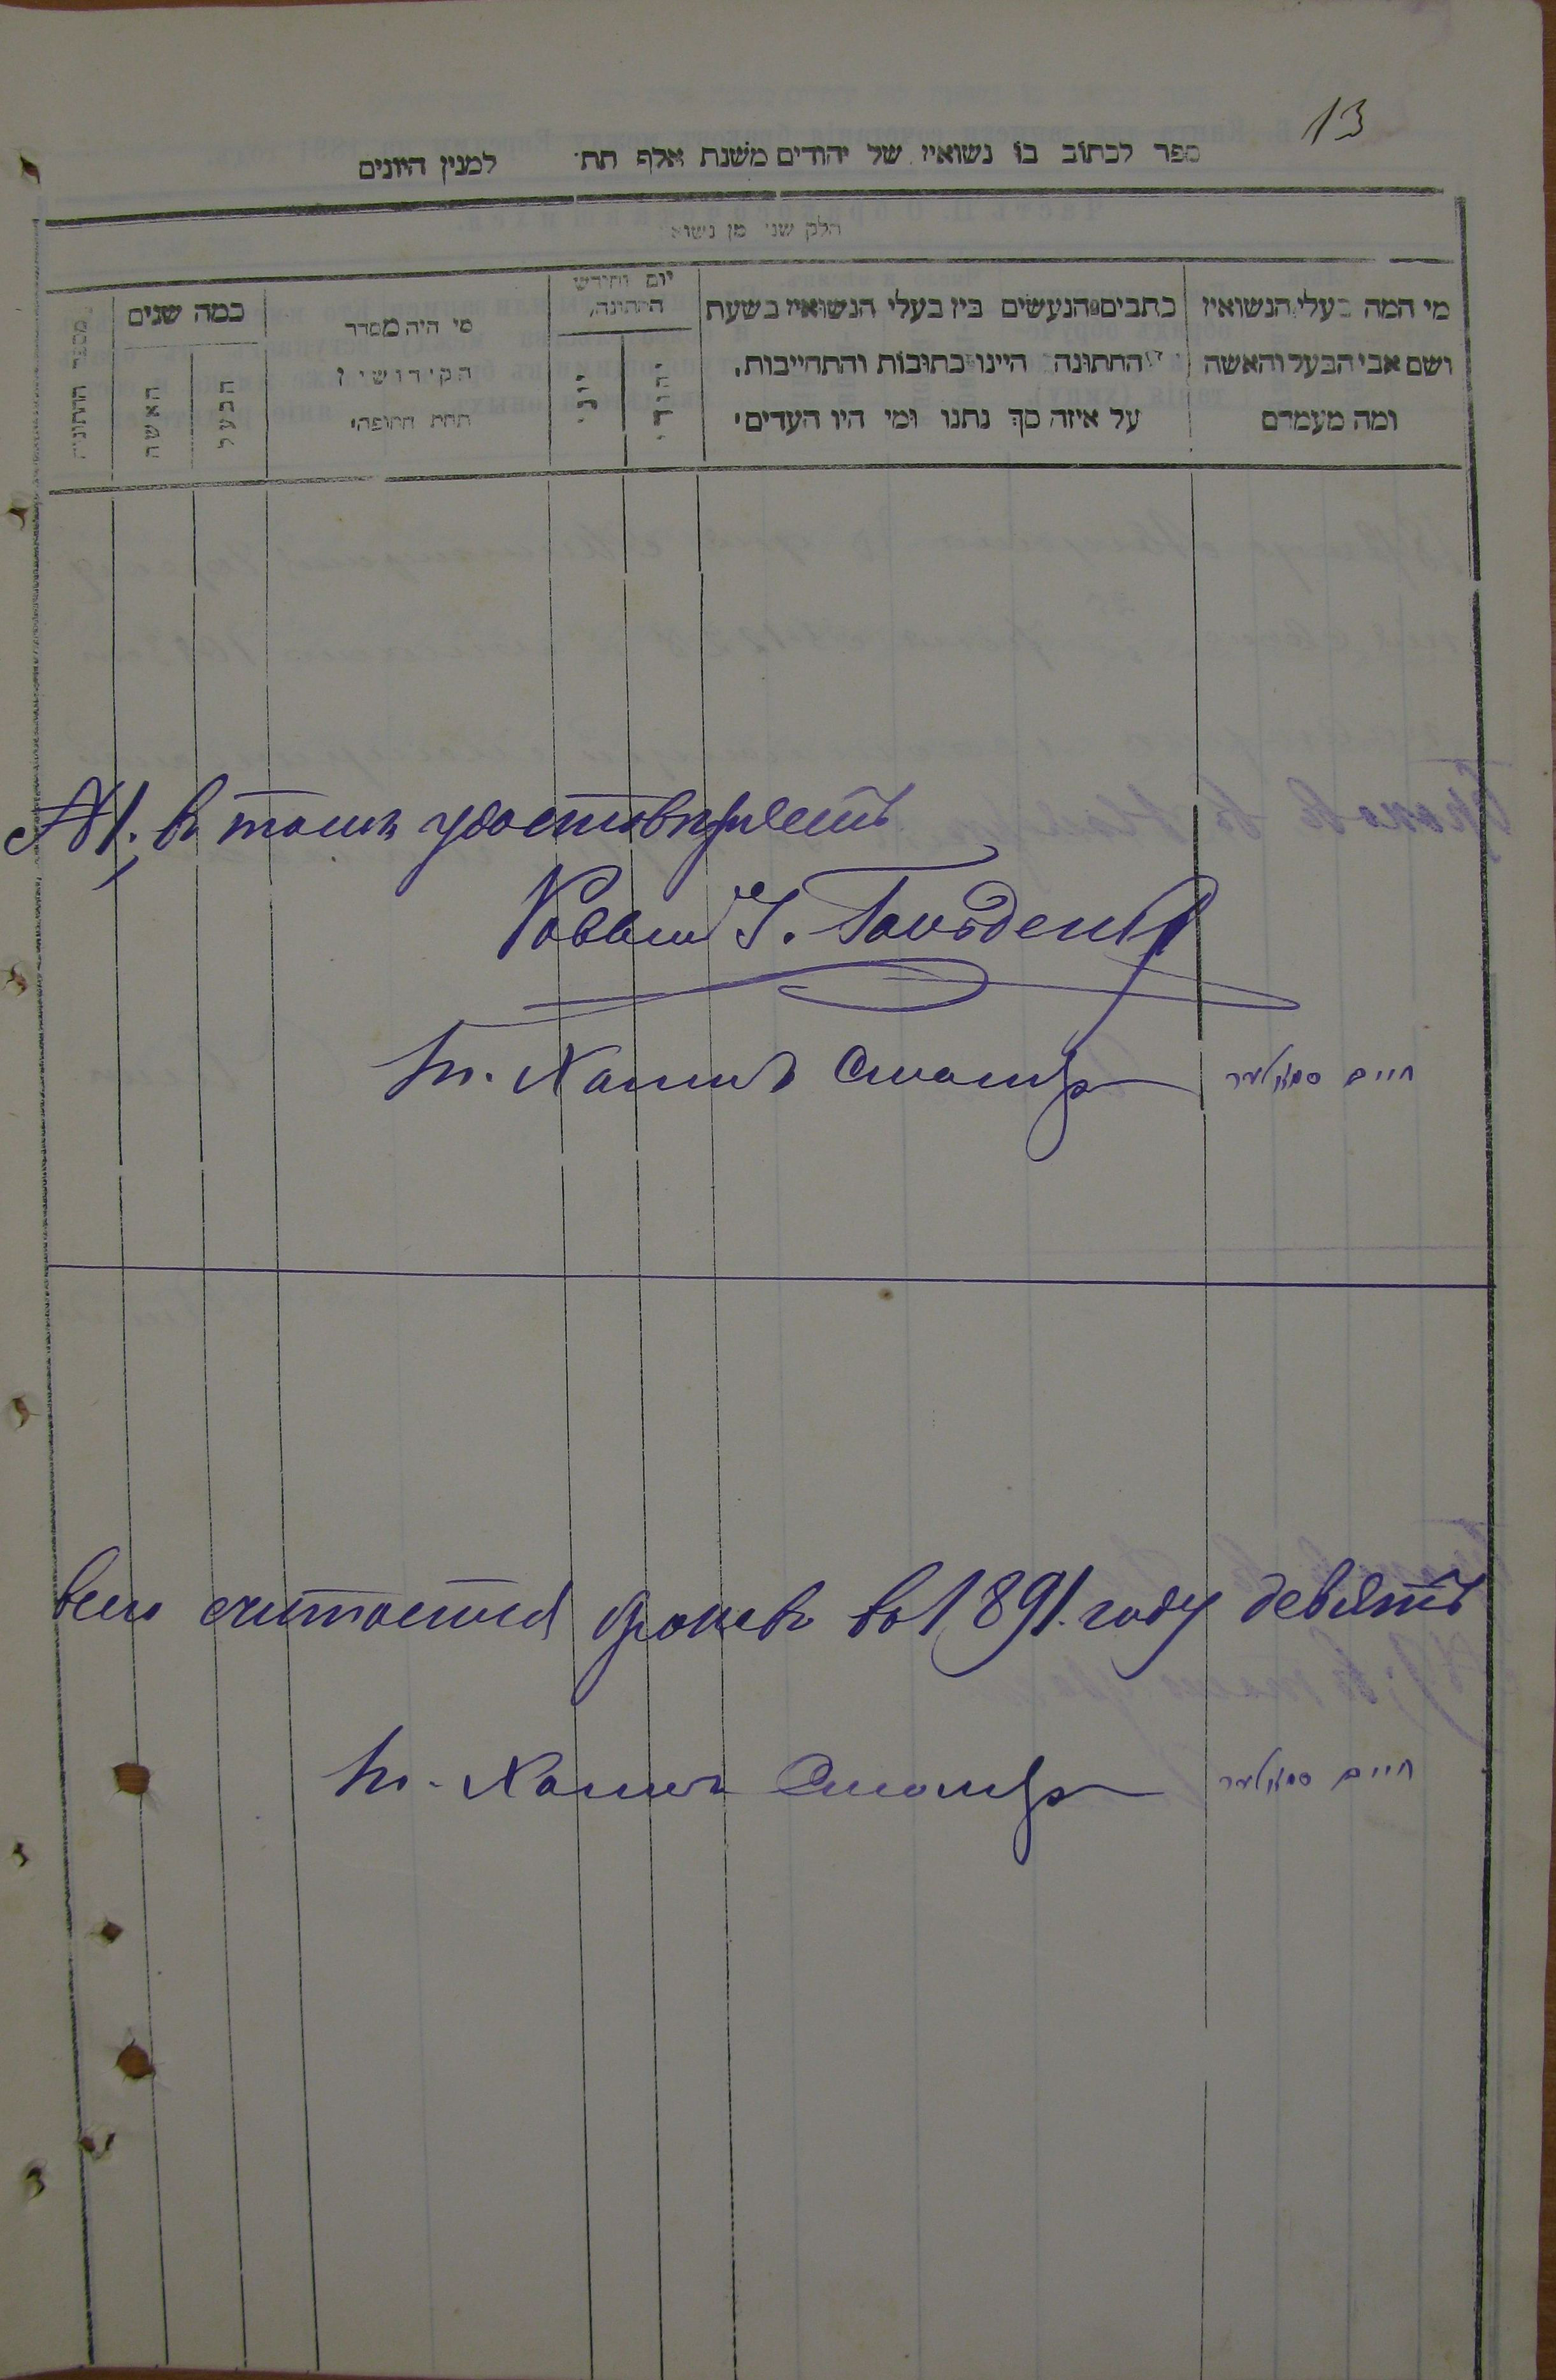 13
ספר לכתוב בו נשואין של יהודים משנת אלף תת׳ למנין היונים
חלק שני מן נשואי
מי המה בעלי הנשואין
ושם אבי הבעל והאשה
ומה מעמדם
כתבים הנעשים בין בעלי הנשואין בשעת
החתונה היינו כתובות והתחייבות,
על איזה סך נתנו ומי היו העדים׳
יום וחודש
החתונה,
יהודי
יוני
מי היה מסדר
הקידושין
תחת החופה׳
כמה שנים
הבעל
האשה
מספר החתונות
№1. въ томъ удостовѣряетъ
Раввинъ
חיים
всего считается браковъ въ 1891. году девять
חיים